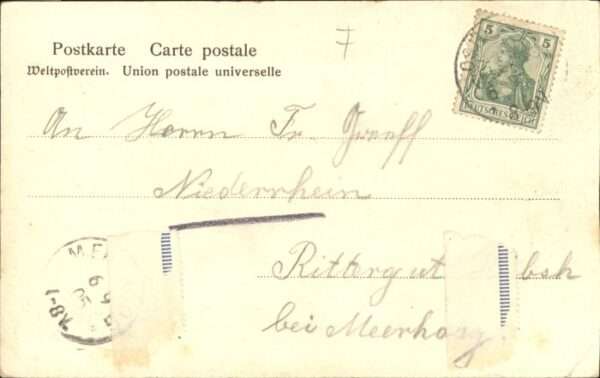 Postkarte Carte postale
Weltpostverein. Union postale universelle
7
5 5
DEUTSCHES REICH
An Herrn Fr. Graeff
Niederrhein
Rittergut
bei Meerho
ME
6 9
05
1-8N